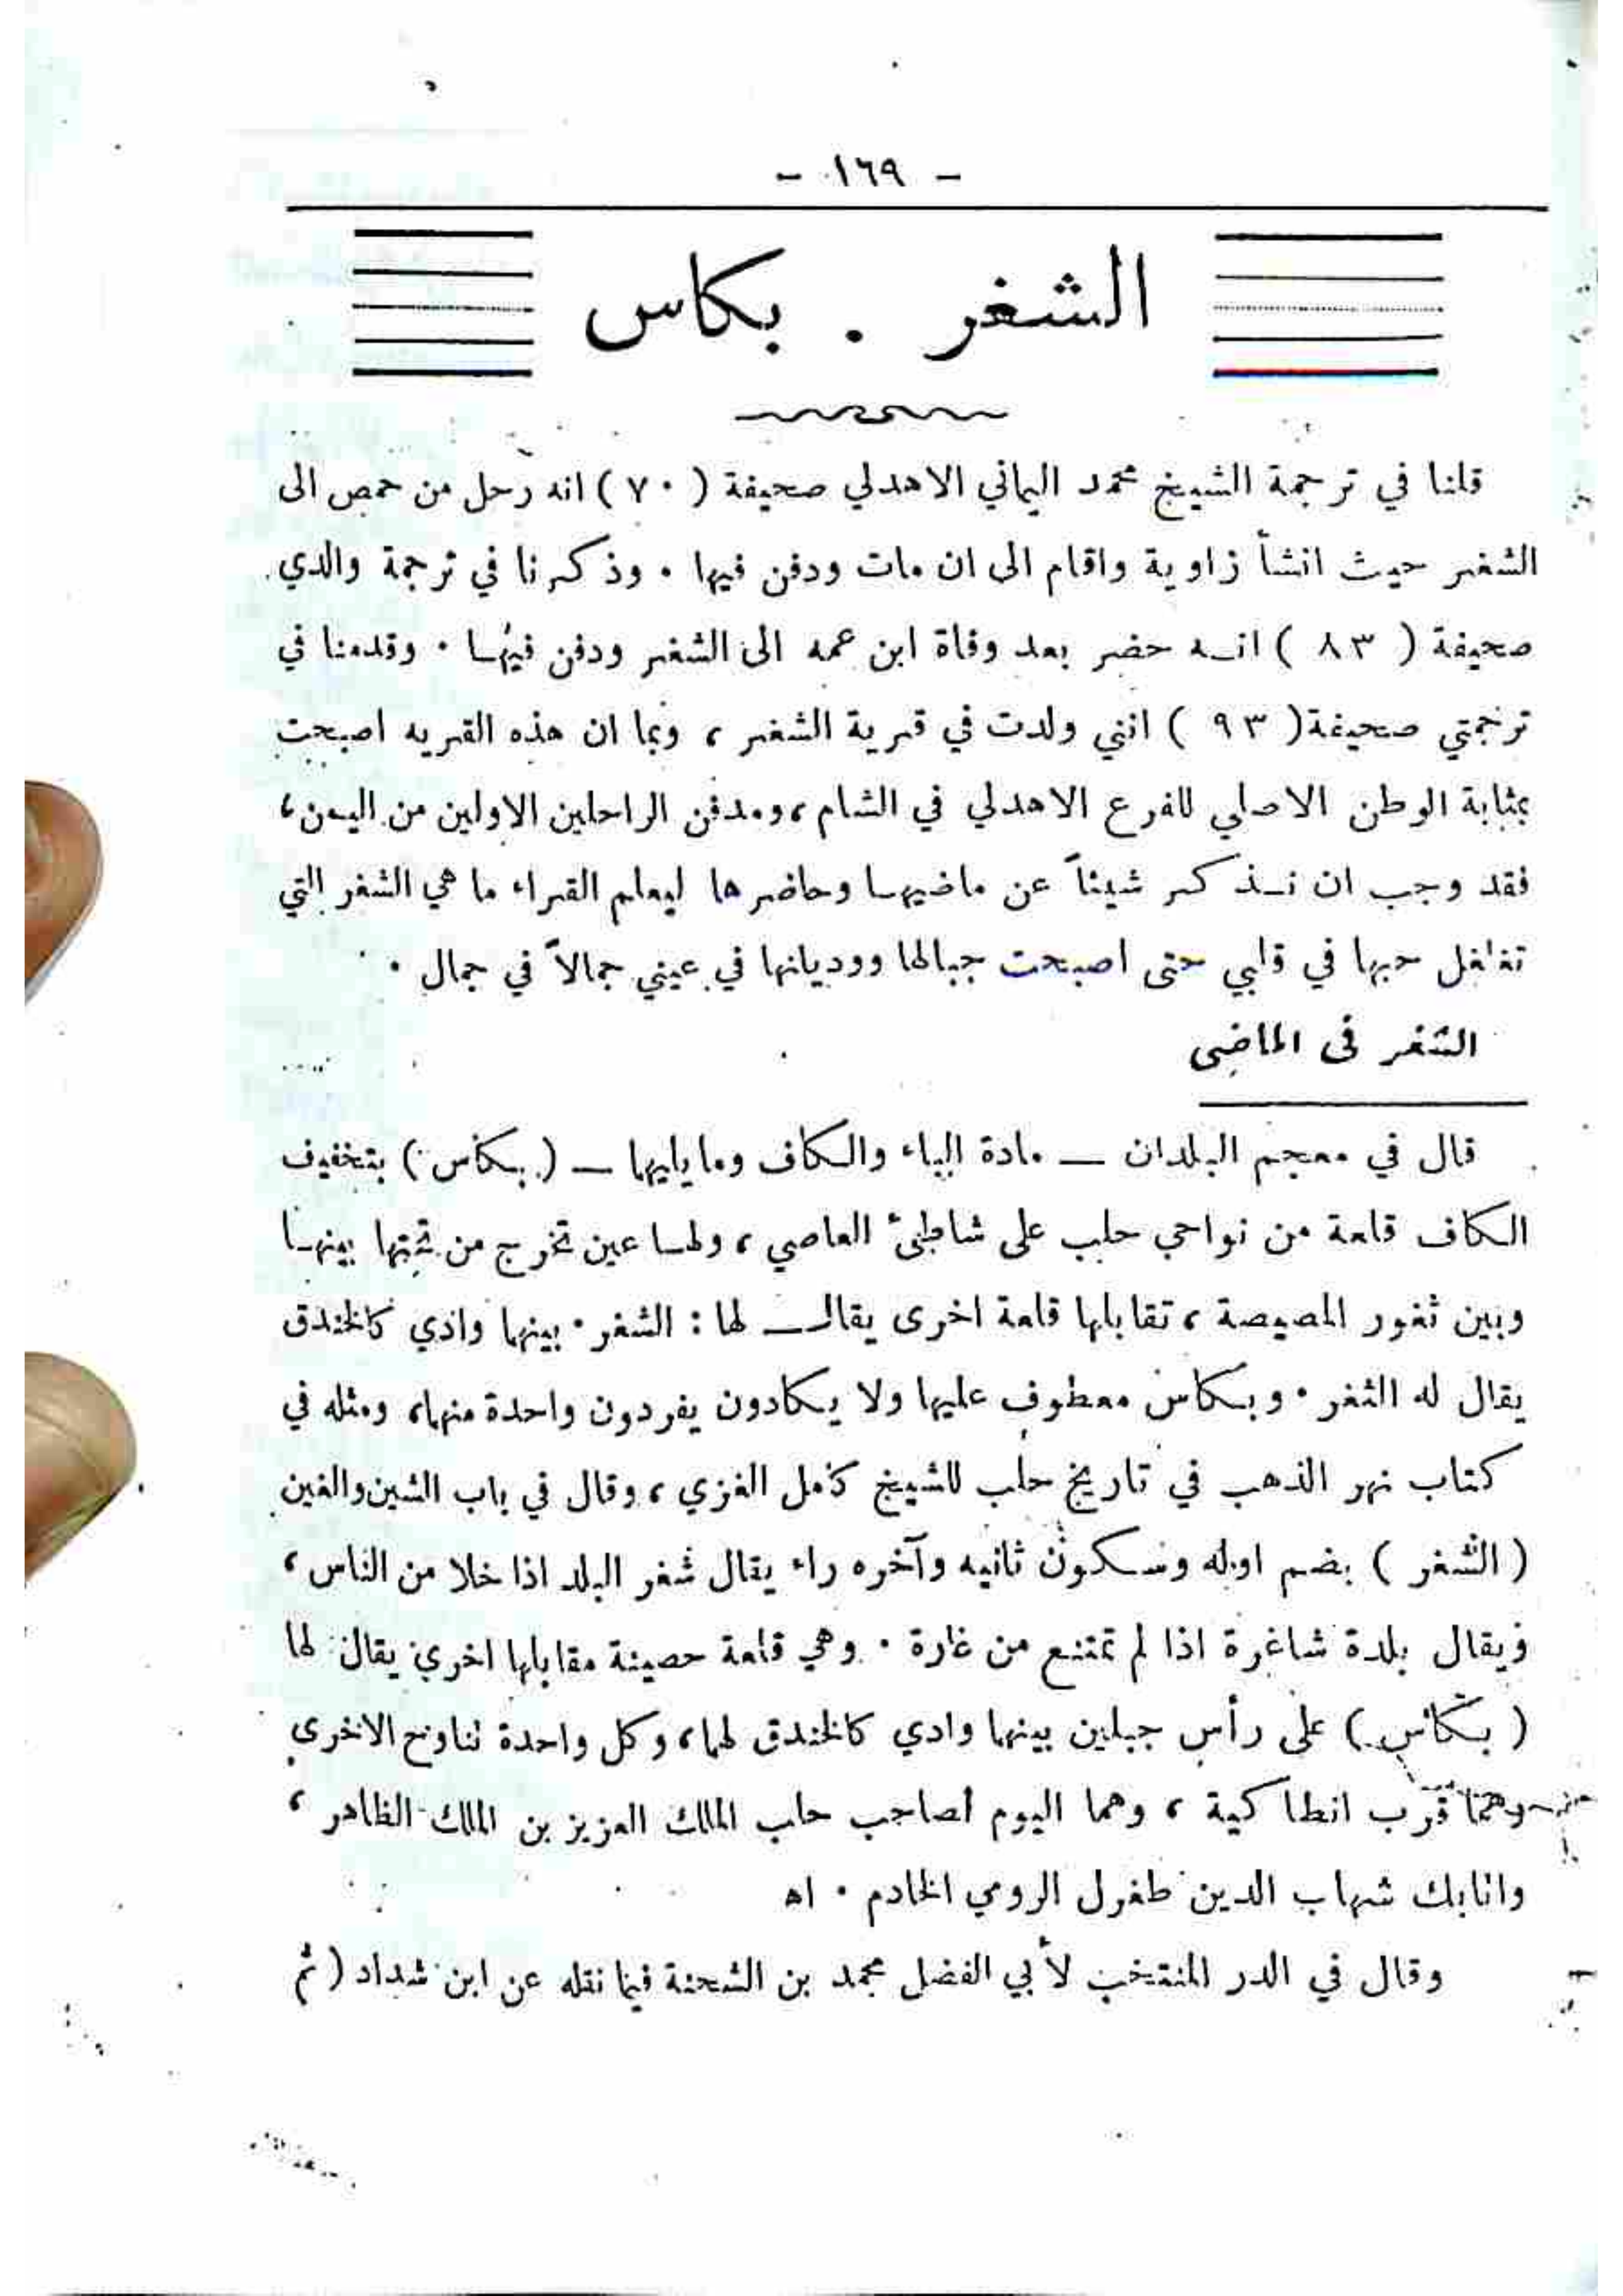 - ١٦٩ -
الشغر . بكاس
قلنا في ترجمة الشيخ محمد اليماني الاهدلي صحيفة ( ٧٠ ) انه رحل من حمص الى
الشغر حيث انشأ زاوية واقام الى ان مات ودفن فيها . وذكرنا في ترجمة والدي
صحيفة ( ٨٣ ) انه حضر بعد وفاة ابن عمه الى الشغر ودفن فيها . وقدمنا في
ترجمتي صحيفة ( ٩٣ ) انني ولدت في قرية الشغر ، وبما ان هذه القريه اصبحت
بمثابة الوطن الاصلي للفرع الاهدلي في الشام ، ومدفن الراحلين الاولين من اليمن ،
فقد وجب ان نذكر شيئاً عن ماضيها وحاضرها ليعلم القراء ما هي الشغر التي
تغلغل حبها في قلبي حتى اصبحت جبالها ووديانها في عيني جمالاً في جمال .
الشغر في الماضي
قال في معجم البلدان — مادة الباء والكاف وما يليها — ( بكاس ) بتخفيف
الكاف قلعة من نواحي حلب على شاطئ العاصي ، ولها عين تخرج من تحتها بينها
وبين ثغور المصيصة ، تقابلها قلعة اخرى يقال لها : الشغر . بينهما وادي كالخندق
يقال له الشغر . وبكاس معطوف عليها ولا يكادون يفردون واحدة منهما ، ومثله في
كتاب نهر الذهب في تاريخ حلب للشيخ كامل الغزي ، وقال في باب الشين والغين
( الشغر ) بضم اوله وسكون ثانيه وآخره راء يقال شغر البلد اذا خلا من الناس ،
ويقال بلدة شاغرة اذا لم تمتنع من غارة . وهي قلعة حصينة مقابلها اخرى يقال لها
( بكاس ) على رأس جبلين بينهما وادي كالخندق لهما ، وكل واحدة تناوح الاخرى
وهما قرب انطاكية ، وهما اليوم لصاحب حلب الملك العزيز بن الملك الظاهر ،
واتابك شهاب الدين طغرل الرومي الخادم . اه
وقال في الدر المنتخب لأبي الفضل محمد بن الشحنة فيما نقله عن ابن شداد ( ثم